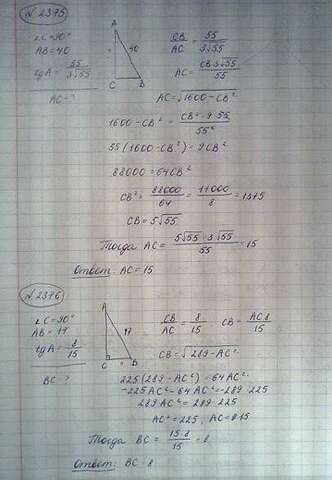 N 2375
∠C=90°
AB=40
tgA = 55/3√55
AC-?
A
40
C B
CB/AC = 55/3√55
AC = CB·3√55/55
AC=√1600-CB²
1600-CB² = CB²·9·55/55²
55(1600-CB²)=9CB²
88000=64CB²
CB² = 88000/64 = 11000/8 = 1375
CB=5√55
Тогда AC = 5√55·3√55/55 = 15
Ответ: AC=15
N 2376
∠C=90°
AB=17
tgA = 8/15
BC-?
A
17
C B
CB/AC = 8/15 CB = AC·8/15
CB=√289-AC²
225(289-AC²)=64AC²
-225AC²-64AC²=-289·225
289AC²=289·225
AC²=225, AC=
Тогда BC = 15·8/15 = 8
Ответ: BC=8